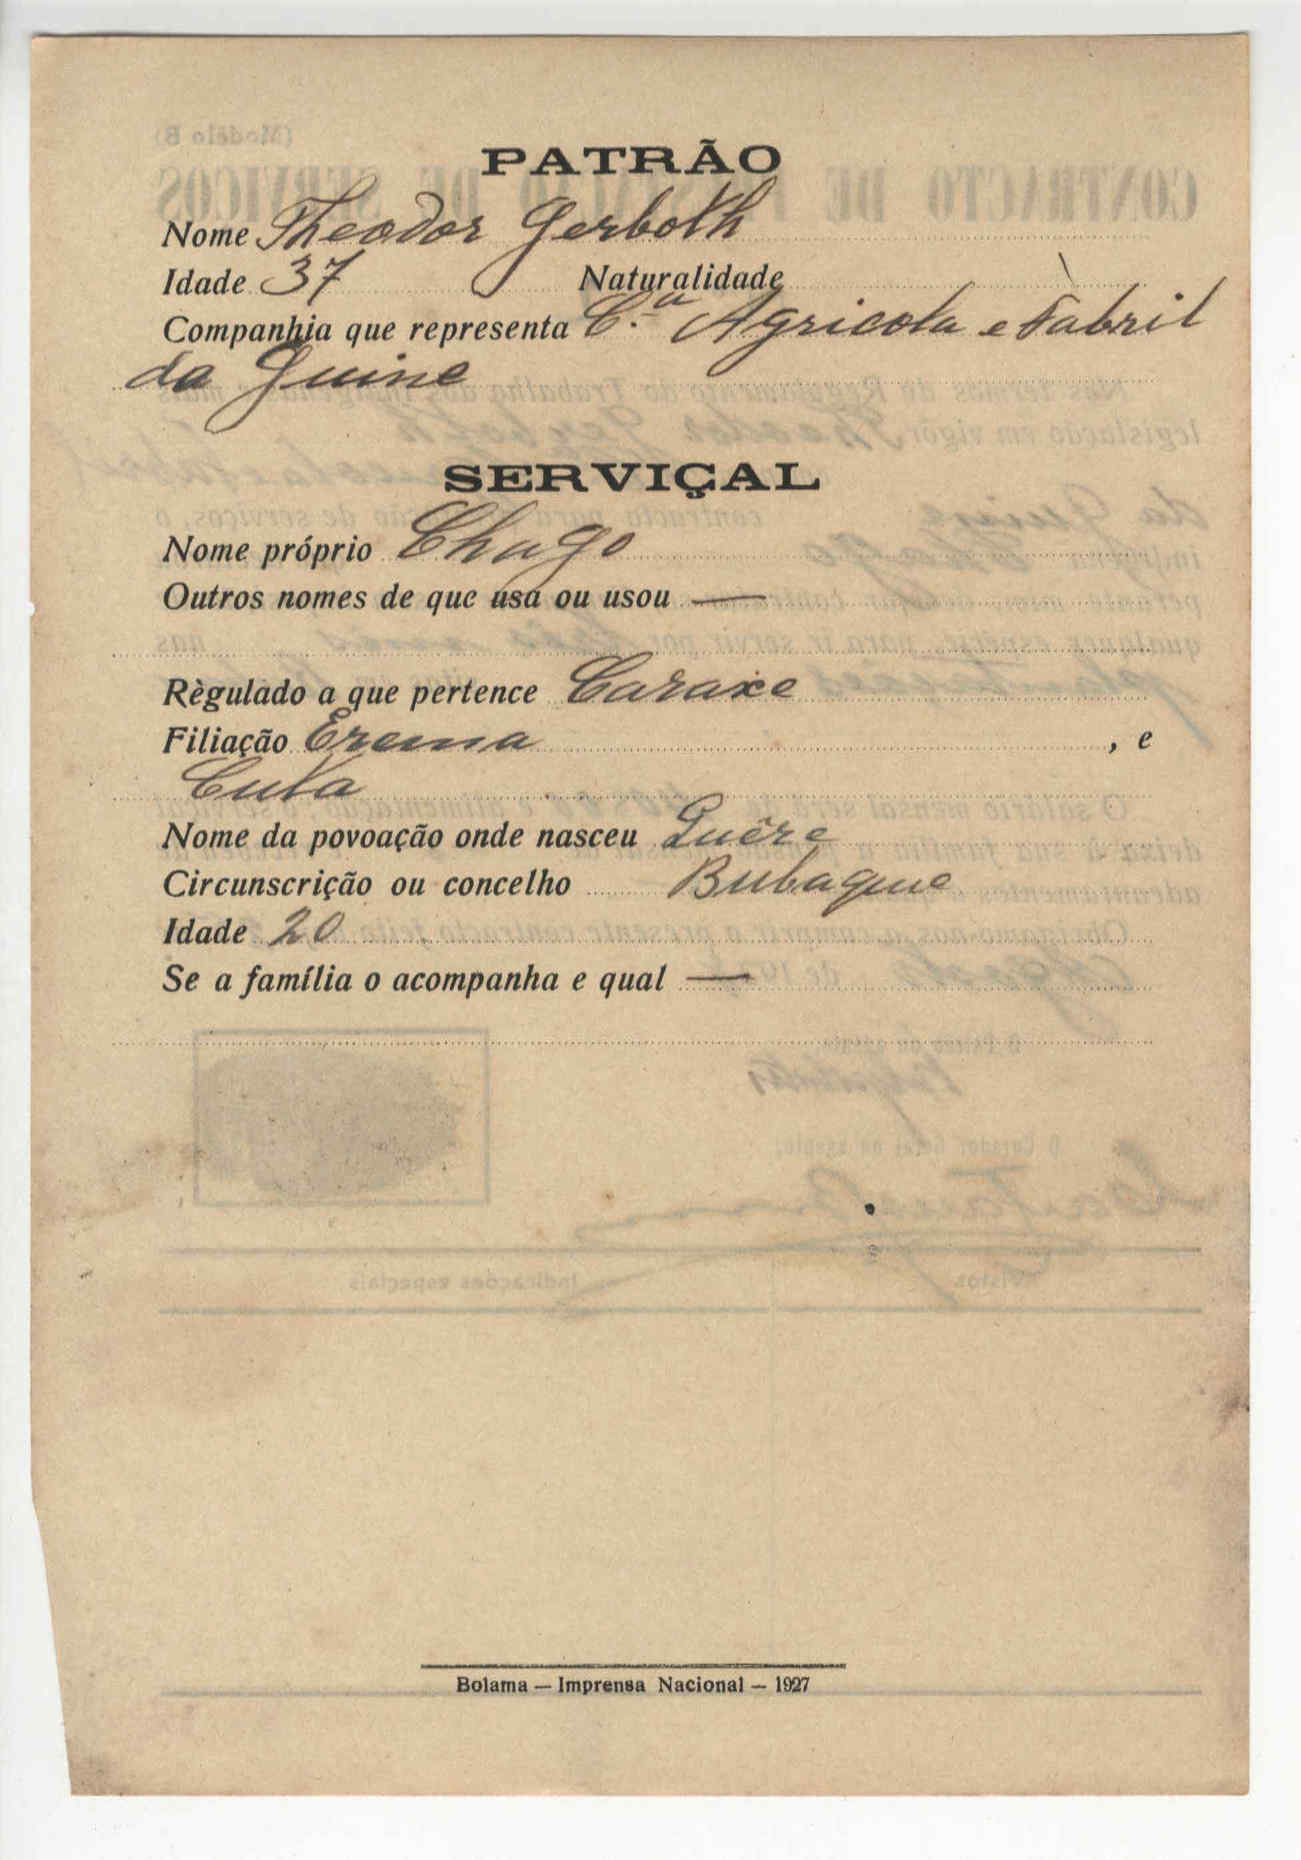 PATRÃO
Nome Theodor Gerboth
Idade 37 Naturalidade
Companhia que representa C.ª Agricola e Fabril
da Guine
SERVIÇAL
Nome próprio Chago
Outros nomes de que usa ou usou —
Règulado a que pertence Caraxe
Filiação Erema , e
Cuta
Nome da povoação onde nasceu Quêre
Circunscrição ou concelho Bubaque
Idade 20
Se a família o acompanha e qual —
Bolama — Imprensa Nacional — 1927